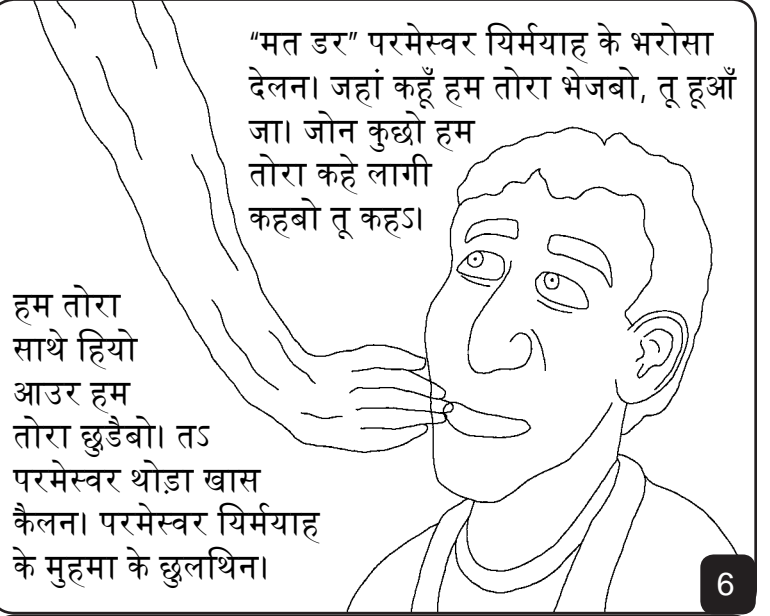 “मत डर” परमेस्वर यिर्मयाह के भरोसा
देलन। जहां कहूँ हम तोरा भेजबो, तू हूआँ
जा। जोन कुछो हम
तोरा कहे लागी
कहबो तू कहऽ।
हम तोरा
साथे हियो
आउर हम
तोरा छुडैबो। तऽ
परमेस्वर थोड़ा खास
कैलन। परमेस्वर यिर्मयाह
के मुहमा के छुलथिन।
6